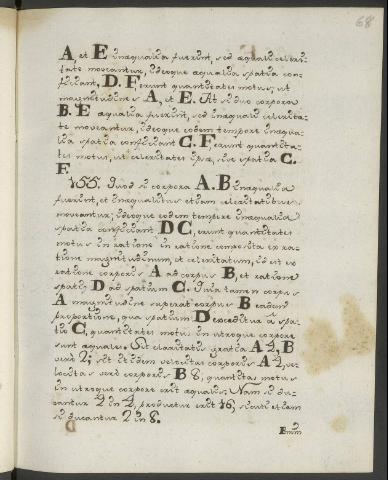 68
A, et E inæqualia fuerint, sed æquali celeri-
tate moveantur, ideoque æqualia spatia con-
ficiant, D. F, erunt quantitates motus, ut
magnitudines A, et E. At si duo corpora
B. E æqualia fuerint, sed inæquali celerita-
te moveantur, ideoque eodem tempore inæqua-
lia spatia conficiant C. F, erunt quantita-
tes motus, ut celeritates ipsæ, sive spatia C.
F.
155. Quod si corpora A. B inæqualia
fuerint, et inæqualibus etiam celeritatibus
moveantur, ideoque eodem tempore inæqualia
spatia conficiant D C, erunt quantitates
motus in ratione in ratione composita ex ra-
tione magnitudinum, et celeritatum, id est ex
ratione corporis A ad corpus B, et ratione
spatij D ad spatium C. Quia tamen corpus
A magnitudine superat corpus B eadem
proportione, qua spatium D exceditur a spa-
tio C, quantitates motus in utroque corpore
sunt æquales. Sit claritatis gratia A 4, B
verò 2; sit eiusdem velocitas corporis A 4, ve-
locitas verò corporis B 8; quantitas motus
in utroque corpore erit æqualis. Nam si du-
cantur 4 in 4, productum erit 16, sicuti etiam
si ducantur 2 in 8.
Enim